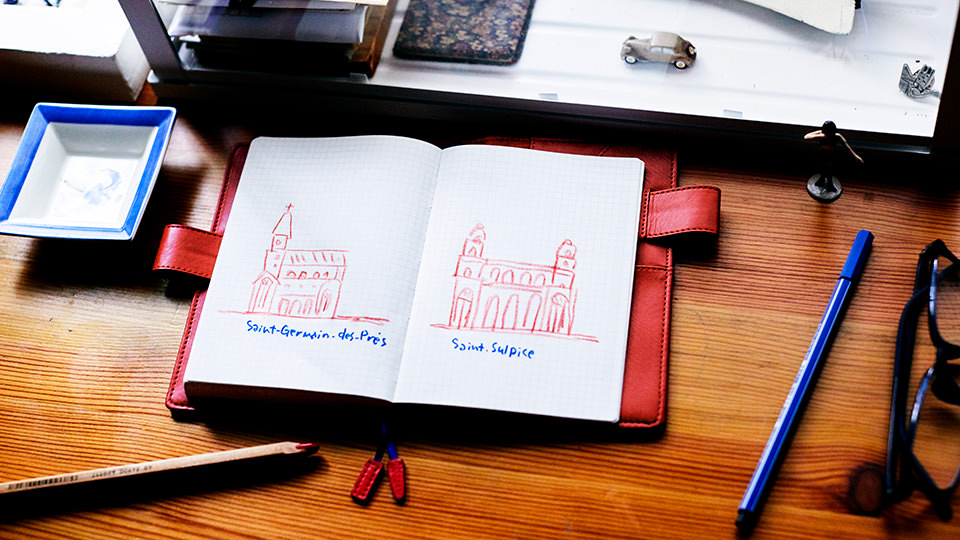 Saint-Germain-des-Prés
Saint-Sulpice